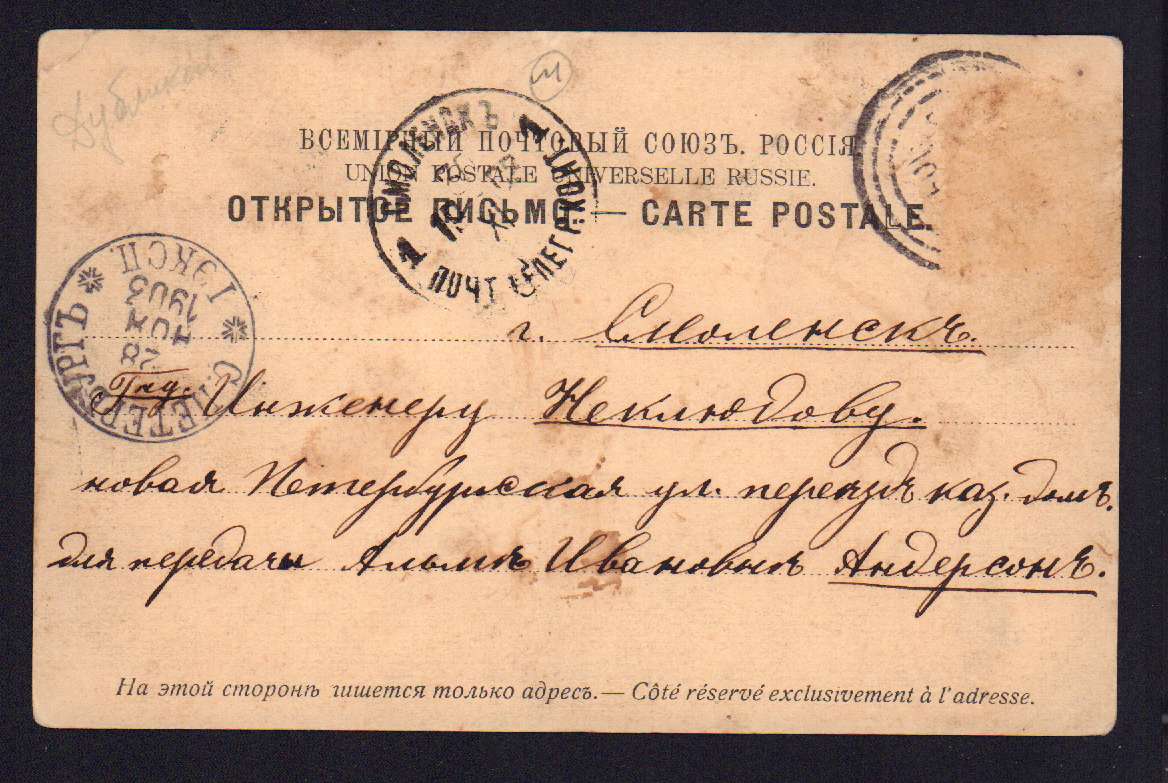 Дубликат
ВСЕМІРНЫЙ ПОЧТОВЫЙ СОЮЗЪ. РОССІЯ
UNION POSTALE UNIVERSELLE RUSSIE.
ОТКРЫТОЕ ПИСЬМО — CARTE POSTALE.
СМОЛЕНСКЪ
1 1
ПОЧТ. ТЕЛЕГР. КОНТ.
С.ПЕТЕРБУРГЪ
I ЭКСП.
1903
28
г. Смоленскъ.
Инженеру Неклюдову.
новая Петербургская ул. переѣздъ каз. домъ.
для передачи Альмѣ Ивановнѣ Андерсонъ.
На этой сторонѣ пишется только адресъ.— Côté réservé exclusivement à l'adresse.